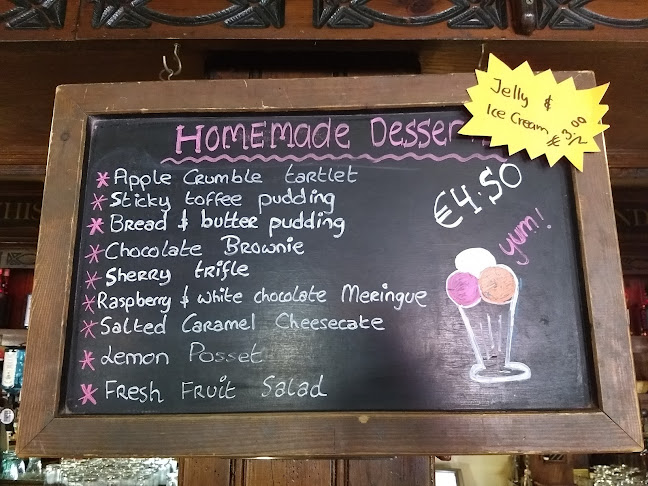 Homemade Desser
Jelly &
Ice Cream
€3.00
* Apple Crumble tartlet
* Sticky toffee pudding
* Bread & butter pudding
* Chocolate Brownie
* Sherry trifle
* Raspberry & white chocolate Meringue
* Salted Caramel Cheesecake
* Lemon Posset
* Fresh Fruit Salad
€4.50
yum!